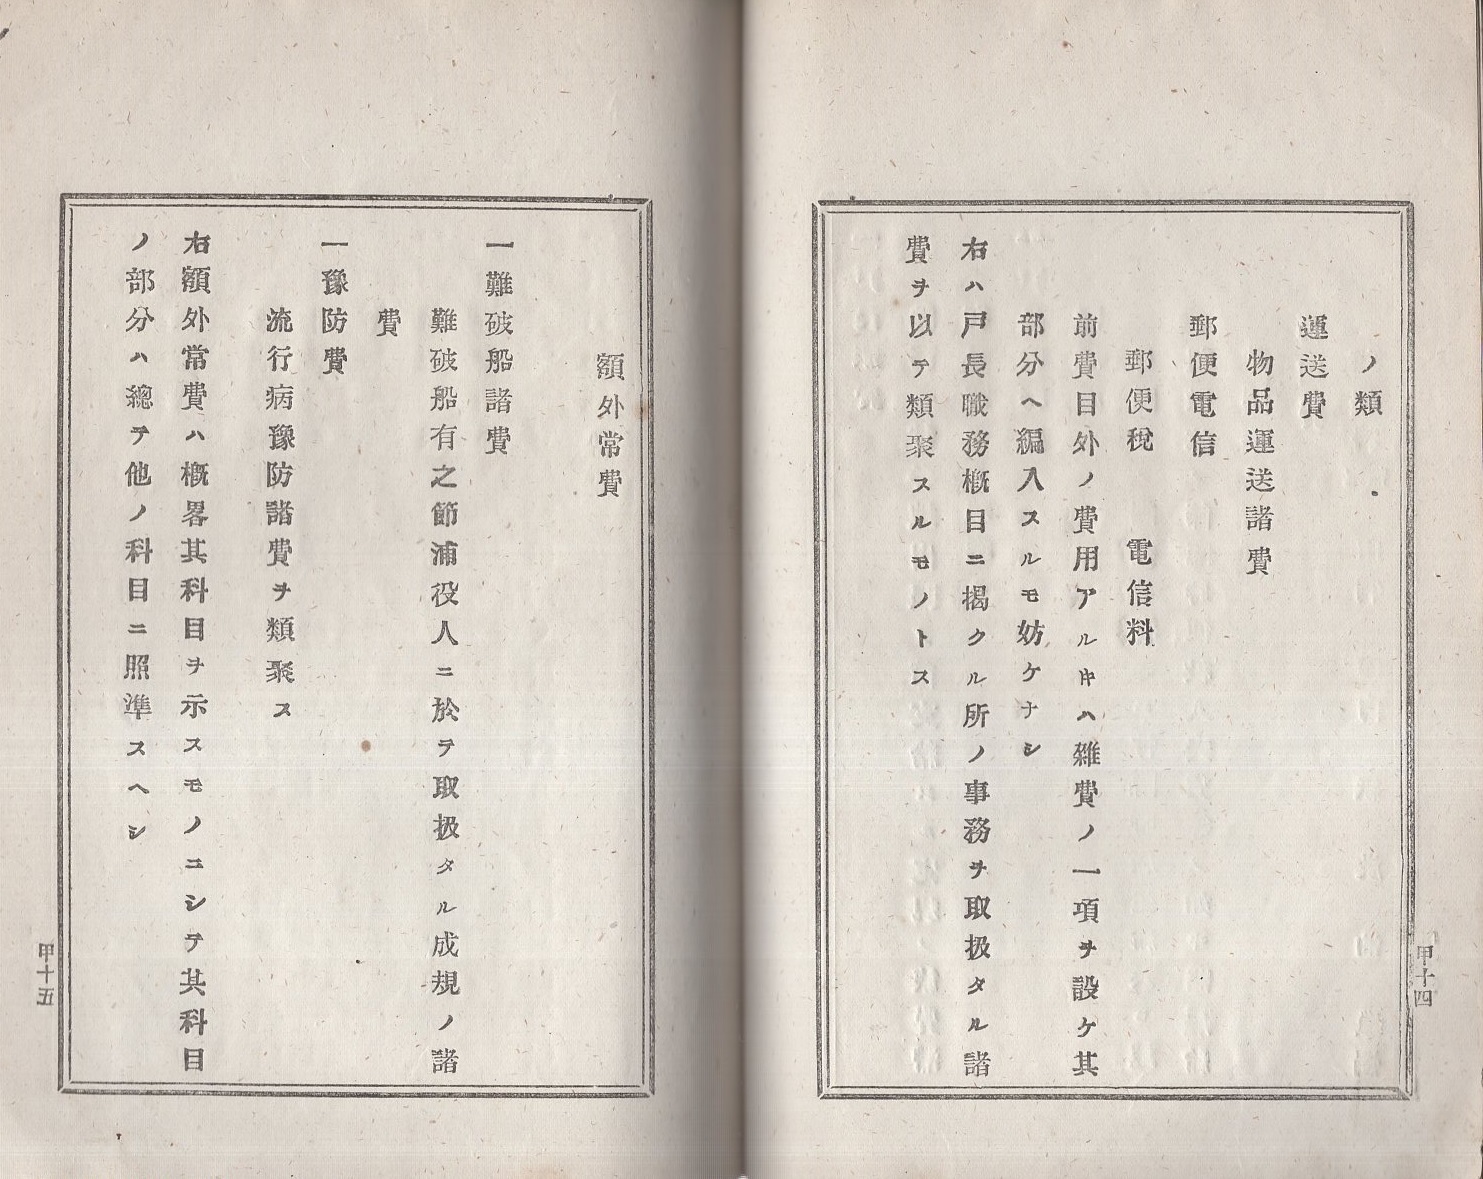 ノ類
運送費
物品運送諸費
郵便電信
郵便稅　電信料
前費目外ノ費用アルヰハ雜費ノ一項ヲ設ケ其
部分ヘ編入スルモ妨ケナシ
右ハ戸長職務槪目ニ揭クル所ノ事務ヲ取扱タル諸
費ヲ以テ類聚スルモノトス
甲十四
額外常費
一難破船諸費
難破船有之節浦役人ニ於テ取扱タル成規ノ諸
費
一豫防費
流行病豫防諸費ヲ類聚ス
右額外常費ハ槪畧其科目ヲ示スモノニシテ其科目
ノ部分ハ總テ他ノ科目ニ照準スヘシ
甲十五